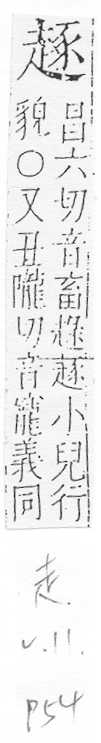 昌六切音畜趢小兒行
貌○又丑隴切音寵義同
走.
v.11.
p54